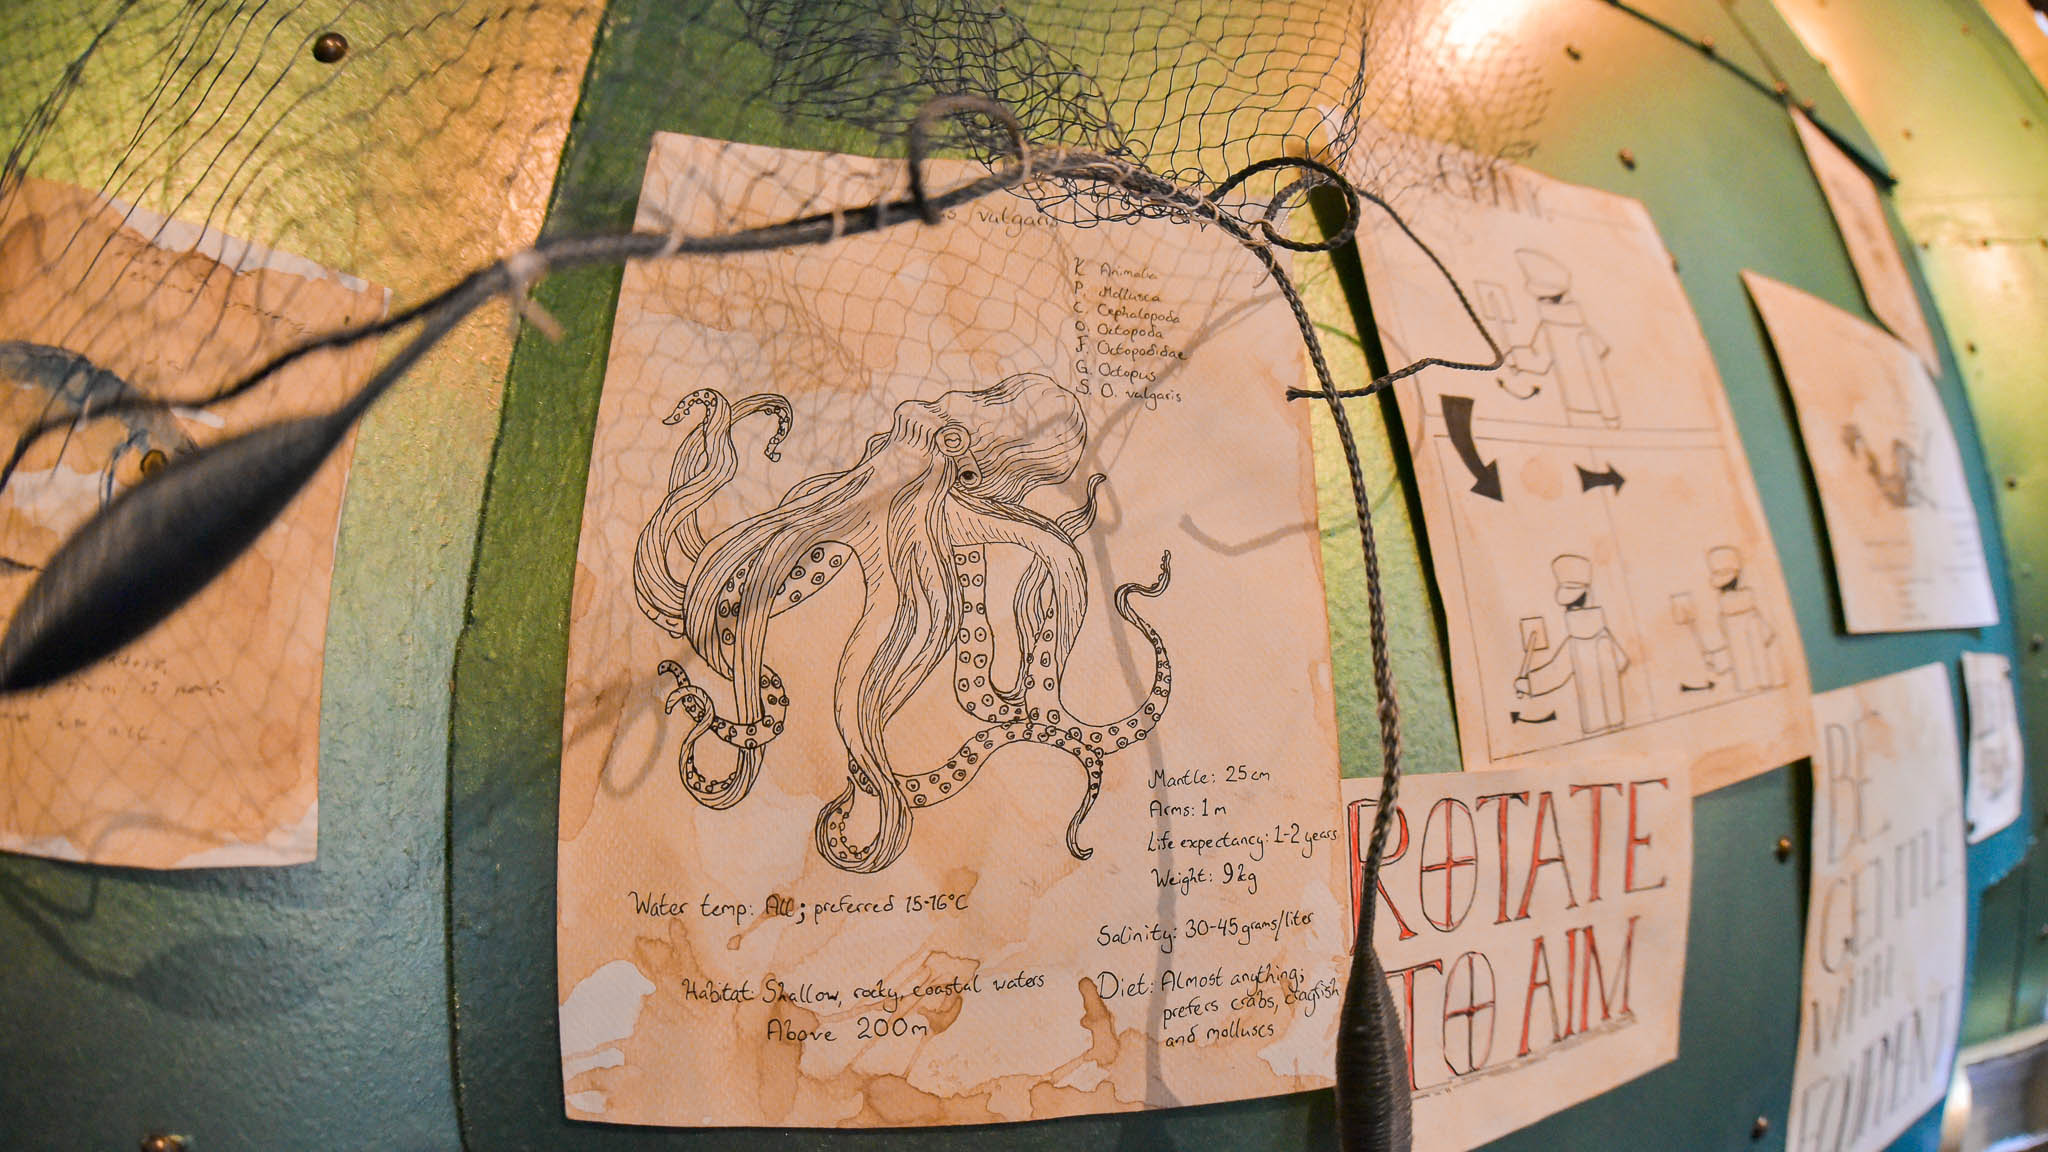 vulgaris
K Animalia
P. Mollusca
C. Cephalopoda
O. Octopoda
F. Octopodidae
G. Octopus
S. O. vulgaris
Mantle: 25cm
Arms: 1m
Life expectancy: 1-2 years
Weight: 9kg
Water temp: All; preferred 15-16°C
Salinity: 30-45 grams/liter
Habitat: Shallow, rocky, coastal waters
Above 200m
Diet: Almost anything;
prefers crabs, crayfish
and molluscs
ROTATE
TO AIM
BE
GENTLE
WITH
EQUIPMENT